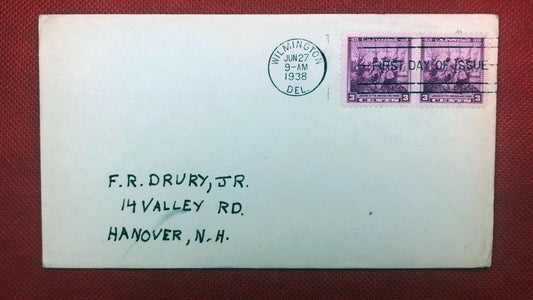 WILMINGTON
JUN 27
9-AM
1938
DEL.
FIRST DAY OF ISSUE
3 3
3 3
F.R. DRURY, JR.
14 VALLEY RD.
HANOVER, N.H.